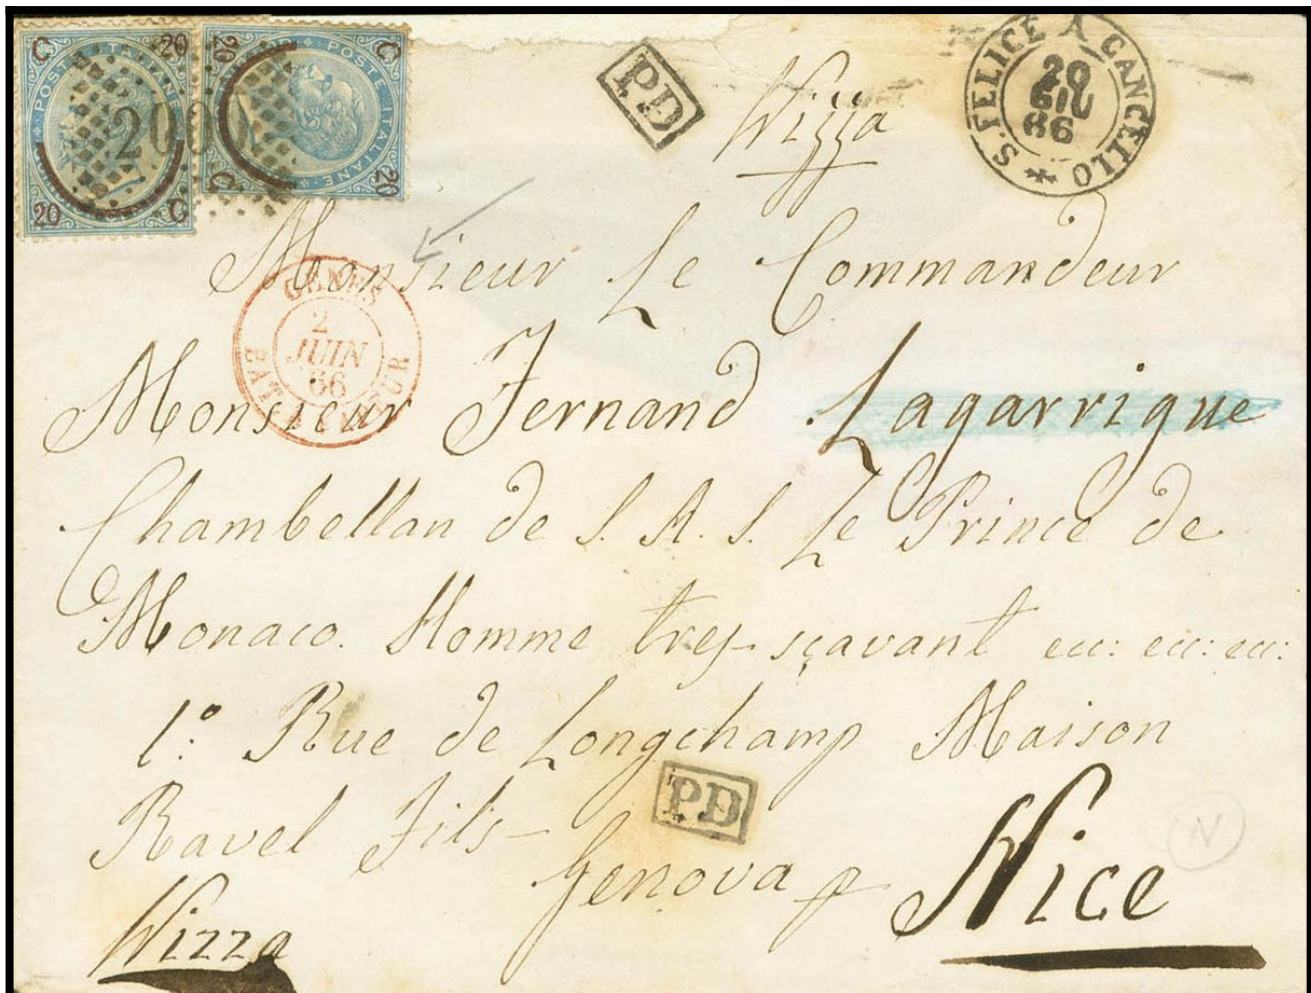 C 20 POSTE ITALIANE 20 C
C 20 POSTE ITALIANE 20 C
PD
Nizza
S. FELICE A CANCELLO
20
GIU
66
Monsieur Le Commandeur
GENES
2
JUIN
66
BAT A VAPEUR
Monsieur Fernand Lagarrigue
Chambellan de S. A. S. Le Prince de
Monaco. Homme tres sçavant ecc: ecc: ecc:
1.° Rue de Longchamp Maison
Ravel Fils
PD
Genova p Nice
N
Nizza